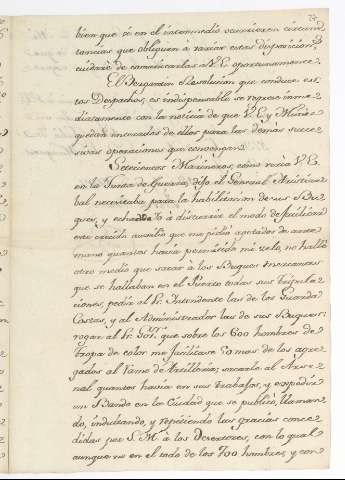 bien que si en el intermedio ocurrieren circuns
tancias que obliguen à variar estas disposicion.s
cuidaré de comunicarlas à V.E. oportunamente.
El Bergantin Resolucion que conduce es
tos Despachos, es indispensable se regrese inme
diatamente con la noticia de que V.E. y
quedan enterados de ellos para las demas suce
sivas operaciones que convengan.
Setecientos Marineros, como vería V.E.
en la Junta de Guerra, dijo el General Aristiza
bal necesitaba para la habilitacion de sus Bu
ques, y à discurrir el modo de facilitar
este crecido auxilio que me pidió agotados de ante
mano quantos havia permitido mi zelo, no hallé
otro medio que sacar à los Buques Mercantes
que se hallaban en el Puerto todas sus tripula
ciones, pedir al Sr. Intendente las de los Guarda
Costas, y al Administrador las de sus Buques:
rogar al Sr. Gov.r que sobre los 600 hombres de
Tropa de color me facilitase 50 mas de los agre
gados al Ramo de Artilleria; sacarle al Arse
nal quantos havia en sus trabajos, y expedir
un Bando en la Ciudad que se publicó, llaman
do, indultando, y repitiendo las gracias conce
didas por S.M. à los Desertores, con lo qual
aunque no en el todo de los 700 hombres, y con